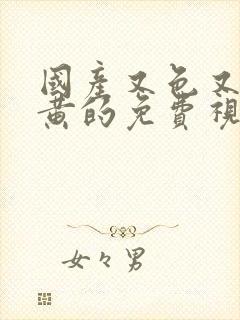 國產又色又
黃的免費視
女々男